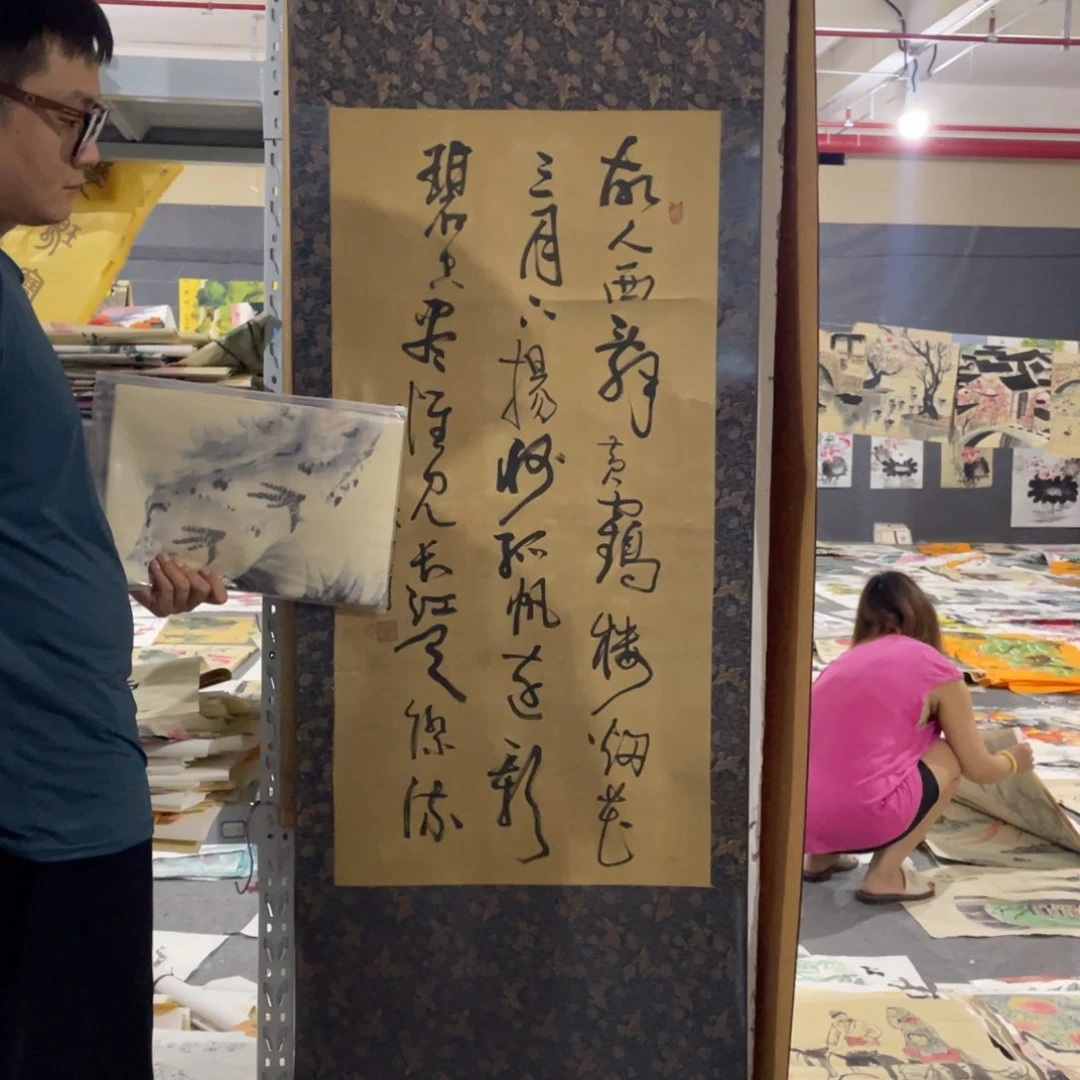 故人西辭黃鶴樓烟花
三月下揚州孤帆遠影
碧空盡惟見長江天際流